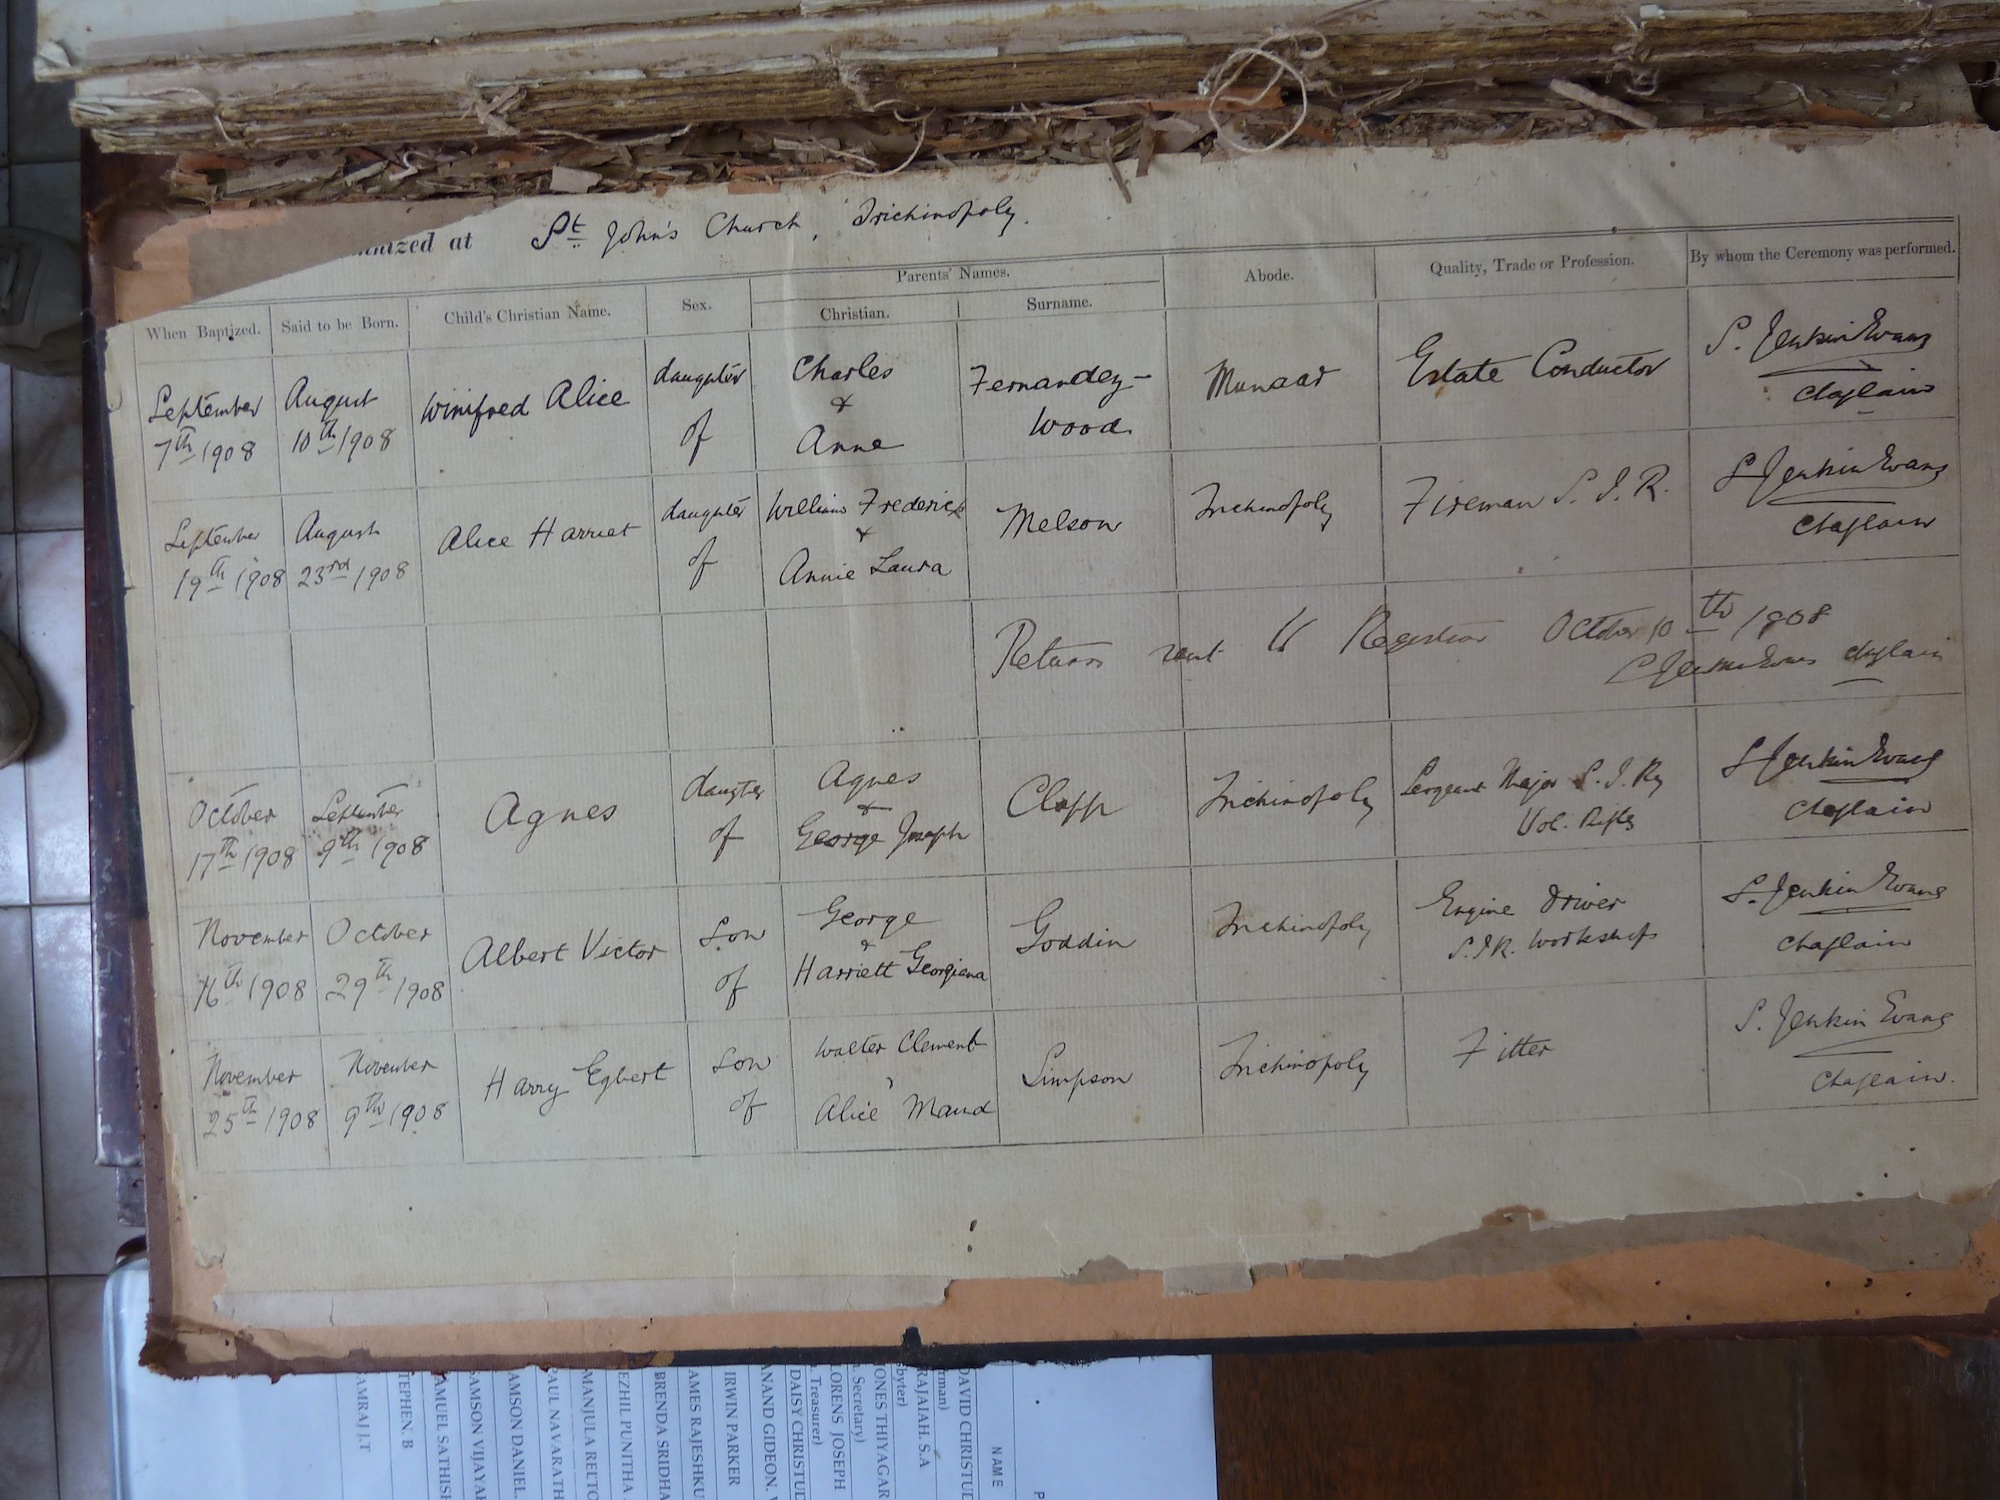 at St John's Church, Trichinopoly.
When Baptized. Said to be Born. Child's Christian Name. Sex. Parents' Names. Abode. Quality, Trade or Profession. By whom the Ceremony was performed.
Christian. Surname.
September 7th 1908
August 10th 1908
Winifred Alice
daughter of
Charles & Anne
Fernandez-Wood
Munaar
Estate Conductor
S. Jenkin Evans
Chaplain
September 19th 1908
August 23rd 1908
Alice Harriet
daughter of
William Frederick & Annie Laura
Melson
Trichinopoly
Fireman S. I. R.
S Jenkin Evans
Chaplain
Return sent to Registrar October 10th 1908
S Jenkin Evans Chaplain
October 17th 1908
September 9th 1908
Agnes
daugter of
Agnes & George Joseph
Clapp
Trichinopoly
Sergeant Major S. I. Ry
Vol. Rifles
S Jenkin Evans
Chaplain
November 16th 1908
October 29th 1908
Albert Victor
Son of
George & Harriett Georgiana
Goddin
Trichinopoly
Engine Driver
S.I.R. Workshops
S. Jenkin Evans
Chaplain
November 25th 1908
November 9th 1908
Harry Egbert
Son of
Walter Clement
Alice Maud
Simpson
Trichinopoly
Fitter
S. Jenkin Evans
Chaplain.
NAME
DAVID CHRISTUD
RAJAIAH. S.A
JONES THIYAGAR
Secretary)
LORENS JOSEPH
Treasurer)
DAISY CHRISTUD
ANAND GIDEON.
IRWIN PARKER
JAMES RAJESHKU
BRENDA SRIDHA
EZHIL PUNITHA
MANJULA RELTO
PAUL NAVARATH
SAMSON DANIEL.
SAMSON VIJAYA
SAMUEL SATHIS
STEPHEN. B